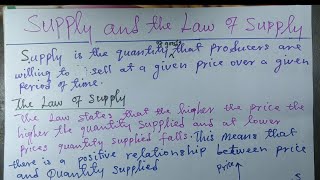 Supply and the Law of Supply
Supply is the quantity of goods that producers are
willing to sell at a given price over a given
period of time.
The Law of Supply
The Law states that the higher the price the
higher the quantity supplied and at lower
prices quantity supplied falls. This means that
there is a positive relationship between price
and Quantity Supplied
Price